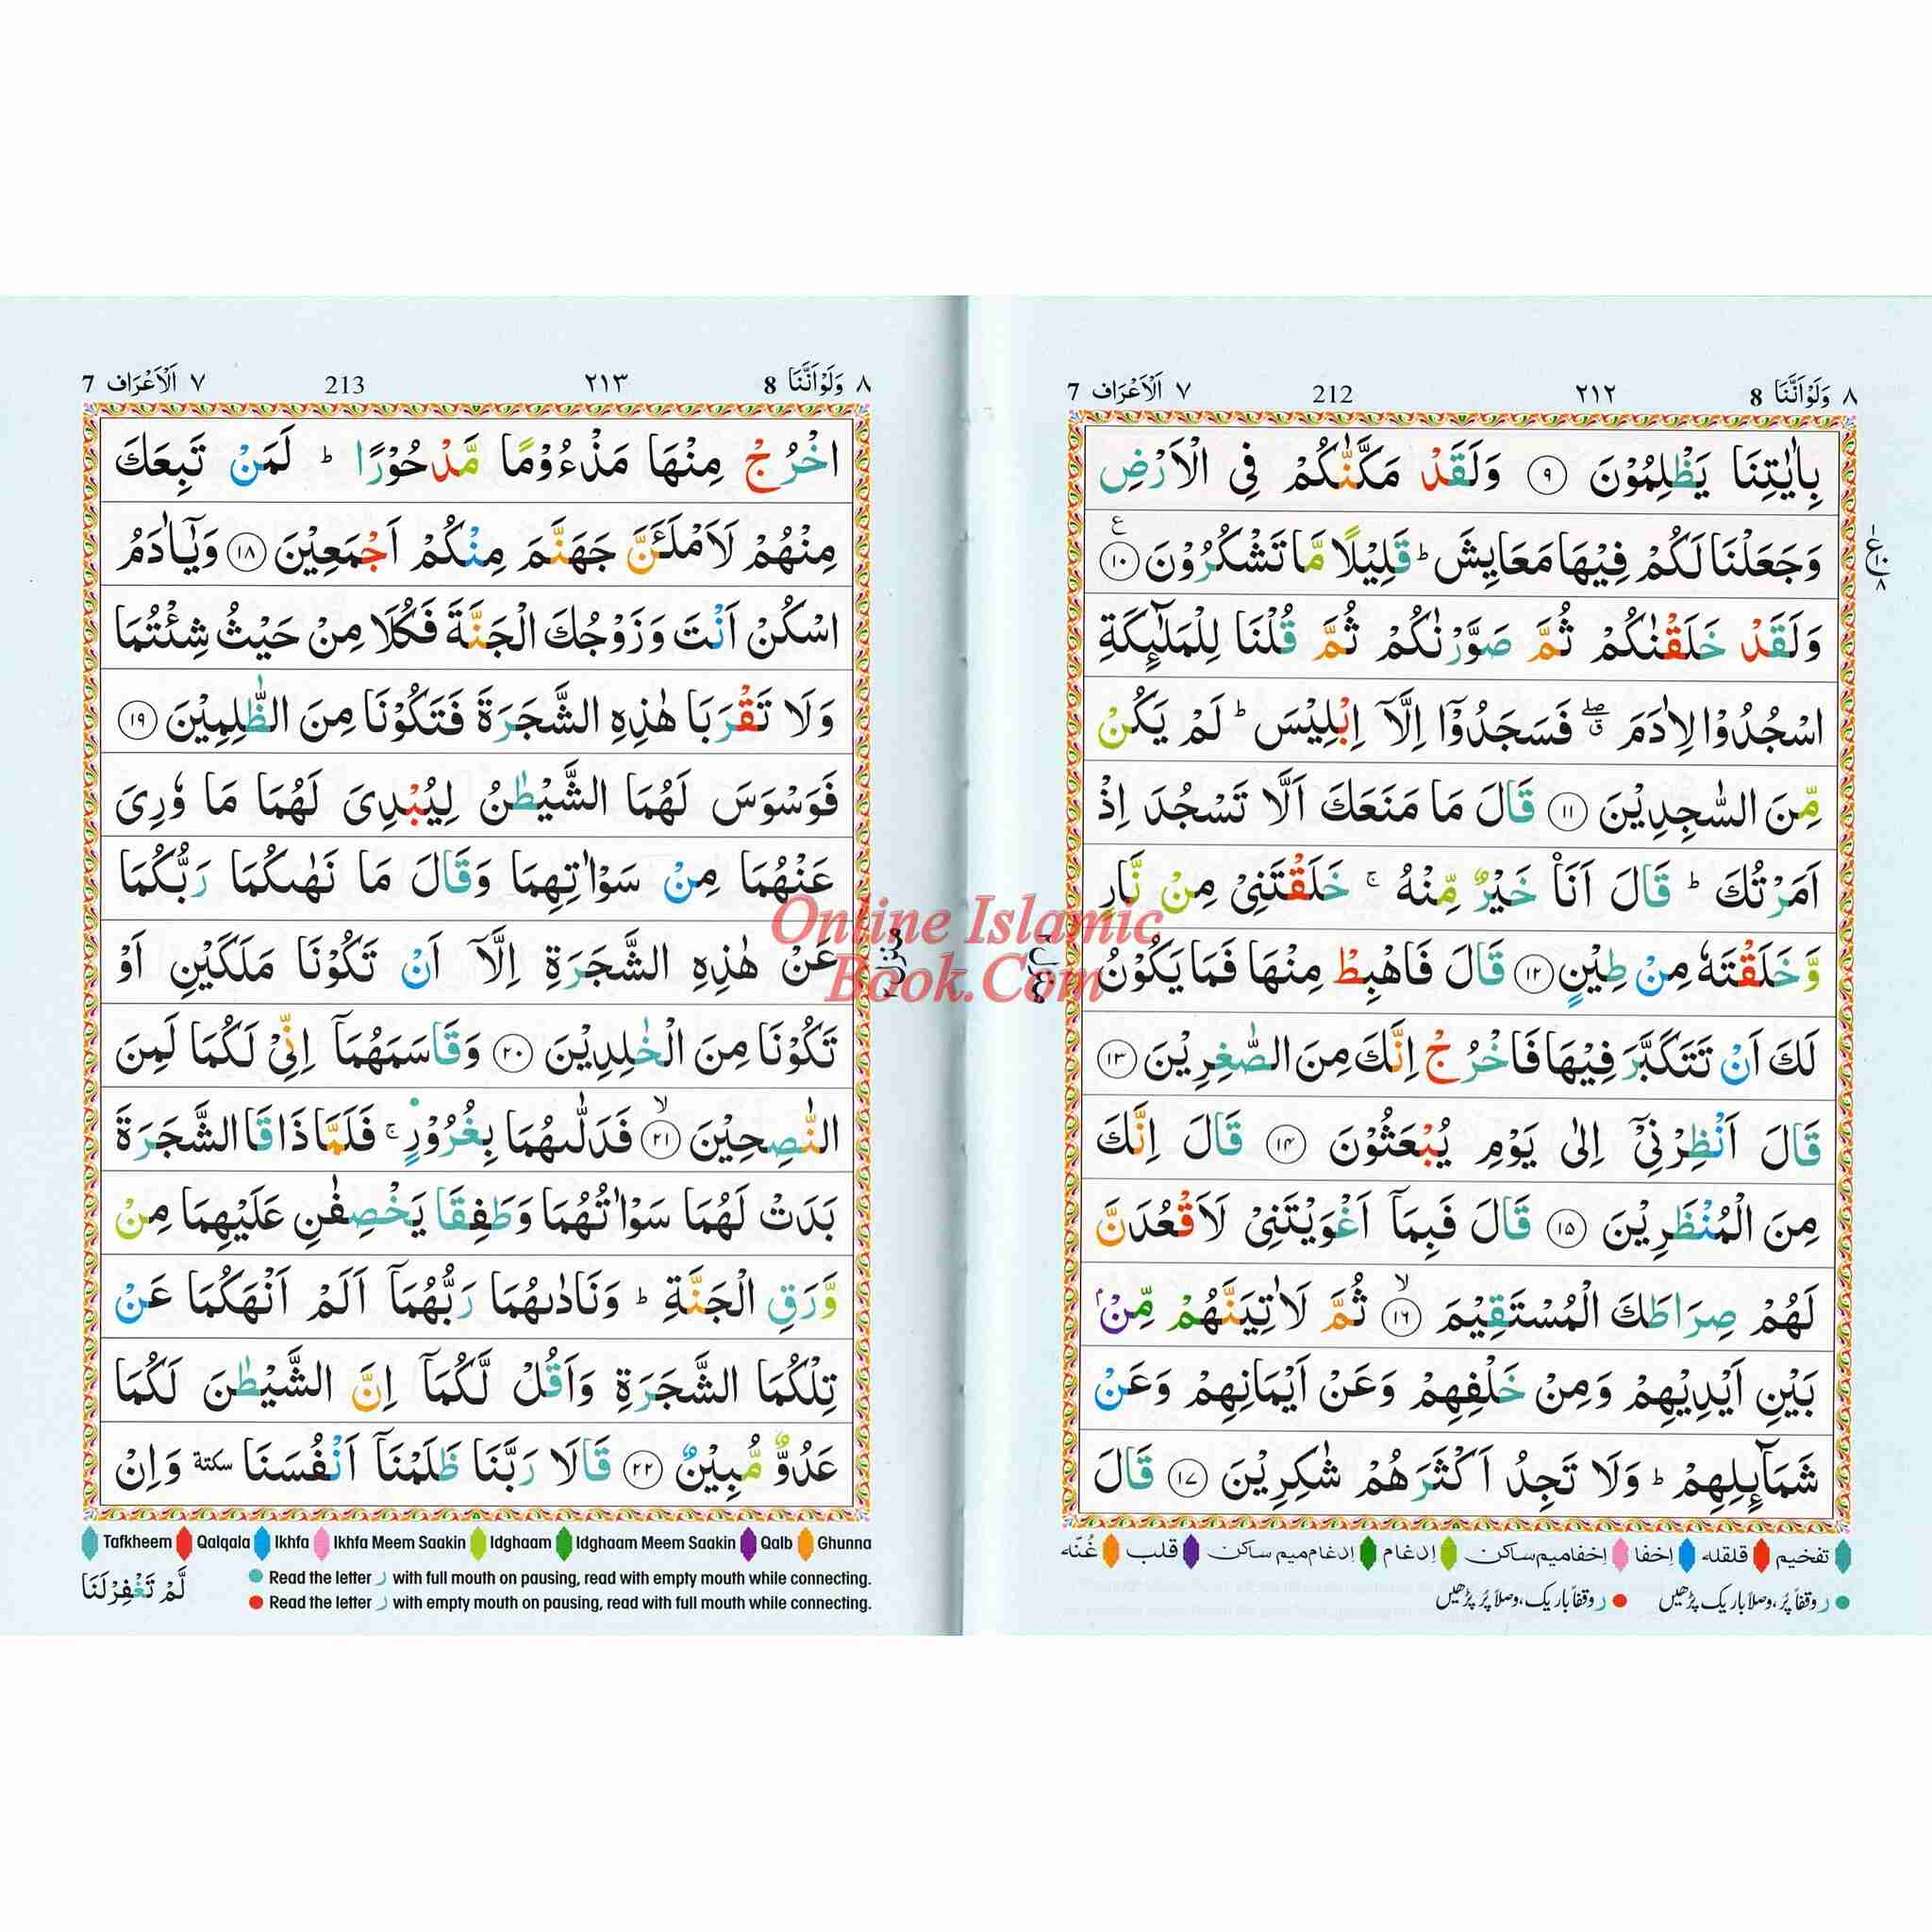 ٨ وَلَوْاَنَّنَا 8 ٢١٢ 212 ٧ اَلْاَعْرَاف 7
بِاٰيٰتِنَا يَظْلِمُوْنَ ٩ وَلَقَدْ مَكَّنّٰكُمْ فِى الْاَرْضِ
وَجَعَلْنَا لَكُمْ فِيْهَا مَعَايِشَ ؕ قَلِيْلًا مَّا تَشْكُرُوْنَ ١٠ ع
وَلَقَدْ خَلَقْنٰكُمْ ثُمَّ صَوَّرْنٰكُمْ ثُمَّ قُلْنَا لِلْمَلٰٓئِكَةِ
اسْجُدُوْا لِاٰدَمَ ۖق فَسَجَدُوْۤا اِلَّاۤ اِبْلِيْسَ ؕ لَمْ يَكُنْ
مِّنَ السّٰجِدِيْنَ ١١ قَالَ مَا مَنَعَكَ اَلَّا تَسْجُدَ اِذْ
اَمَرْتُكَ ؕ قَالَ اَنَا۠ خَيْرٌ مِّنْهُ ۚ خَلَقْتَنِىْ مِنْ نَّارٍ
وَّخَلَقْتَهٗ مِنْ طِيْنٍ ١٢ قَالَ فَاهْبِطْ مِنْهَا فَمَا يَكُوْنُ
لَكَ اَنْ تَتَكَبَّرَ فِيْهَا فَاخْرُجْ اِنَّكَ مِنَ الصّٰغِرِيْنَ ١٣
قَالَ اَنْظِرْنِىْۤ اِلٰى يَوْمِ يُبْعَثُوْنَ ١٤ قَالَ اِنَّكَ
مِنَ الْمُنْظَرِيْنَ ١٥ قَالَ فَبِمَاۤ اَغْوَيْتَنِىْ لَاَقْعُدَنَّ
لَهُمْ صِرَاطَكَ الْمُسْتَقِيْمَ ۙ ١٦ ثُمَّ لَاٰتِيَنَّهُمْ مِّنْۢ
بَيْنِ اَيْدِيْهِمْ وَمِنْ خَلْفِهِمْ وَعَنْ اَيْمَانِهِمْ وَعَنْ
شَمَآئِلِهِمْ ؕ وَلَا تَجِدُ اَكْثَرَهُمْ شٰكِرِيْنَ ١٧ قَالَ
تفخیم قلقله اِخفا اِخفامیم ساکن اِدغام اِدغام میم ساکن قلب غُنّه
ر وقفاً پُر، وصلاً باریک پڑھیں ر وقفاً باریک، وصلاً پُر پڑھیں
٨ وَلَوْاَنَّنَا 8 ٢١٣ 213 ٧ اَلْاَعْرَاف 7
اخْرُجْ مِنْهَا مَذْءُوْمًا مَّدْحُوْرًا ؕ لَمَنْ تَبِعَكَ
مِنْهُمْ لَاَمْلَـَٔنَّ جَهَنَّمَ مِنْكُمْ اَجْمَعِيْنَ ١٨ وَيٰۤاٰدَمُ
اسْكُنْ اَنْتَ وَزَوْجُكَ الْجَنَّةَ فَكُلَا مِنْ حَيْثُ شِئْتُمَا
وَلَا تَقْرَبَا هٰذِهِ الشَّجَرَةَ فَتَكُوْنَا مِنَ الظّٰلِمِيْنَ ١٩
فَوَسْوَسَ لَهُمَا الشَّيْطٰنُ لِيُبْدِىَ لَهُمَا مَا وٗرِىَ
عَنْهُمَا مِنْ سَوْاٰتِهِمَا وَقَالَ مَا نَهٰىكُمَا رَبُّكُمَا
عَنْ هٰذِهِ الشَّجَرَةِ اِلَّاۤ اَنْ تَكُوْنَا مَلَكَيْنِ اَوْ
تَكُوْنَا مِنَ الْخٰلِدِيْنَ ٢٠ وَقَاسَمَهُمَاۤ اِنِّىْ لَكُمَا لَمِنَ
النّٰصِحِيْنَ ۙ ٢١ فَدَلّٰىهُمَا بِغُرُوْرٍ ۚ فَلَمَّا ذَاقَا الشَّجَرَةَ
بَدَتْ لَهُمَا سَوْاٰتُهُمَا وَطَفِقَا يَخْصِفٰنِ عَلَيْهِمَا مِنْ
وَّرَقِ الْجَنَّةِ ؕ وَنَادٰىهُمَا رَبُّهُمَاۤ اَلَمْ اَنْهَكُمَا عَنْ
تِلْكُمَا الشَّجَرَةِ وَاَقُلْ لَّكُمَاۤ اِنَّ الشَّيْطٰنَ لَكُمَا
عَدُوٌّ مُّبِيْنٌ ٢٢ قَالَا رَبَّنَا ظَلَمْنَاۤ اَنْفُسَنَا سكتة وَاِنْ
Tafkheem Qalqala Ikhfa Ikhfa Meem Saakin Idghaam Idghaam Meem Saakin Qalb Ghunna
Read the letter ر with full mouth on pausing, read with empty mouth while connecting.
Read the letter ر with empty mouth on pausing, read with full mouth while connecting.
لَّمْ تَغْفِرْلَنَا
Online Islamic
Book.Com